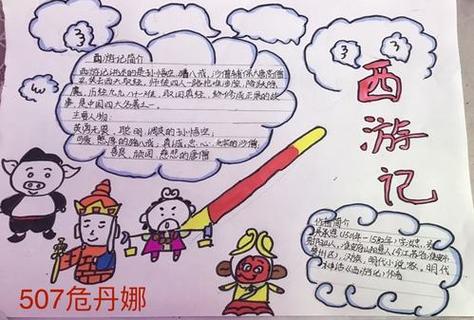 西游记
西游记简介
西游记讲述的是孙悟空、猪八戒、沙僧辅保大唐高僧
玄奘去西天取经，师徒四人一路抢滩涉险，降妖伏
魔，历经九九八十一难，取回真经，终修成正果的故
事，是中国四大名著之一。
主要人物：
英勇无畏、聪明、调皮的孙悟空；
的猪八戒、真诚、忠心、的沙僧、
善良、顽固、慈悲的唐僧
作者简介
吴承恩（1501年－1582年）字汝忠，
汉族，明代小说家，明代
《西游记》作者
507危丹娜